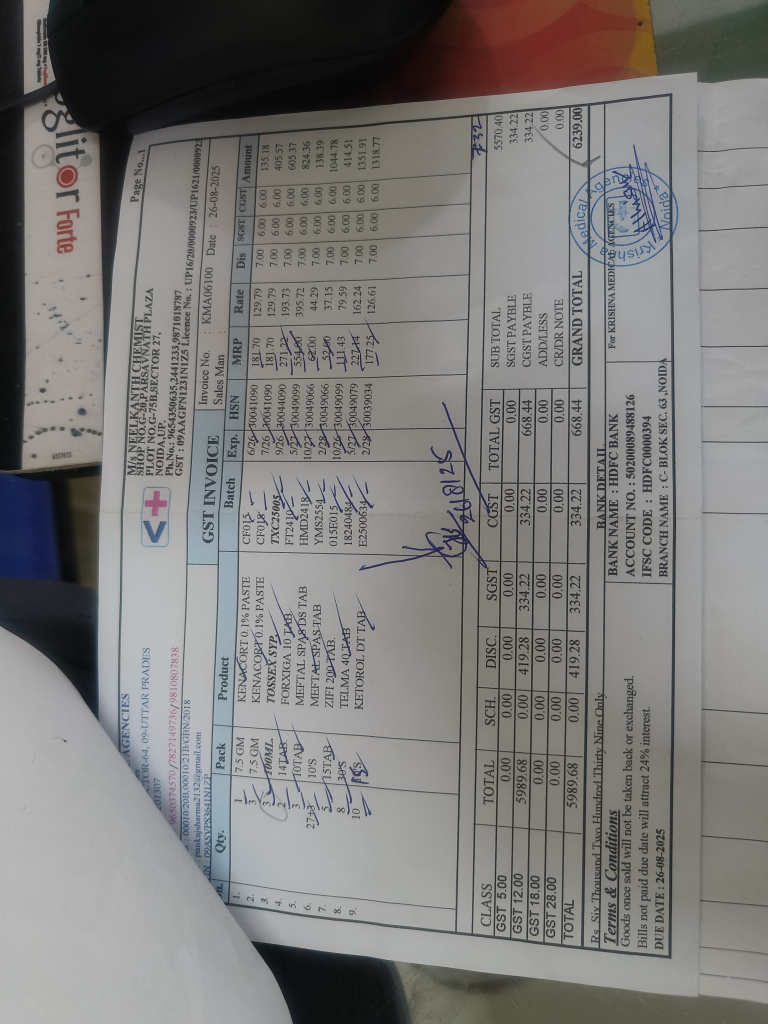 glitor Forte
Page No...1
AGENCIES
CTOR-64, 09-UTTAR PRADES
01307
9650374570/7827149736/9810807838
pankajsharma2132@gmail.com
: 00010/20B,00010/21B/GBN/2018
M/s NEELKANTH CHEMIST
SHOP NO.G-20,PARSAVNATH PLAZA
PLOT NO.G-75B,SECTOR 27,
NOIDA,UP,
Ph.No.: 9654350635,2441233,9871018787
GST : 09AAGFN1231N1Z5 Licence No. : UP16/20/0000923/UP1621/0000923
GST INVOICE
Invoice No. : KMA06100 Date : 26-08-2025
Sales Man :
Qty. Pack Product Batch Exp. HSN MRP Rate Dis SGST CGST Amount
1. 1 7.5 GM KENACORT 0.1% PASTE CF015 6/26 30041090 181.70 129.79 7.00 6.00 6.00 135.18
2. 3 7.5 GM KENACORT 0.1% PASTE CF018 7/26 30041090 181.70 129.79 7.00 6.00 6.00 405.57
3. 3 100ML TOSSEX SYP. TXC25005 9/26 30044090 271.22 193.73 7.00 6.00 6.00 605.37
4. 2 14TAB FORXIGA 10 TAB. FT2410 5/27 30049099 554.00 395.72 7.00 6.00 6.00 824.36
5. 3 10TAB MEFTAL SPAS DS TAB HMD2418 10/27 30049066 62.00 44.29 7.00 6.00 6.00 138.39
6. 27+3 10'S MEFTAL SPAS TAB YMS2554 2/28 30049066 52.00 37.15 7.00 6.00 6.00 1044.78
7. 5 15TAB ZIFI 200 TAB. 015E015 10/26 30049099 111.43 79.59 7.00 6.00 6.00 414.51
8. 8 30'S TELMA 40 TAB 18240484 5/27 30049079 227.14 162.24 7.00 6.00 6.00 1351.91
9. 10 15'S KETOROL DT TAB E2500634 2/28 30039034 177.25 126.61 7.00 6.00 6.00 1318.77
732
CLASS TOTAL SCH. DISC. SGST CGST TOTAL GST
GST 5.00 0.00 0.00 0.00 0.00 0.00 0.00
GST 12.00 5989.68 0.00 419.28 334.22 334.22 668.44
GST 18.00 0.00 0.00 0.00 0.00 0.00 0.00
GST 28.00 0.00 0.00 0.00 0.00 0.00 0.00
TOTAL 5989.68 0.00 419.28 334.22 334.22 668.44
SUB TOTAL 5570.40
SGST PAYBLE 334.22
CGST PAYBLE 334.22
ADD/LESS 0.00
CR/DR NOTE 0.00
GRAND TOTAL 6239.00
Rs. Six Thousand Two Hundred Thirty Nine Only
Terms & Conditions
Goods once sold will not be taken back or exchanged.
Bills not paid due date will attract 24% interest.
DUE DATE : 26-08-2025
BANK DETAIL
BANK NAME : HDFC BANK
ACCOUNT NO. : 50200089488126
IFSC CODE : HDFC0000394
BRANCH NAME : C- BLOK SEC. 63 ,NOIDA
For KRISHNA MEDICAL AGENCIES
Krishna Medical Agencies
Noida